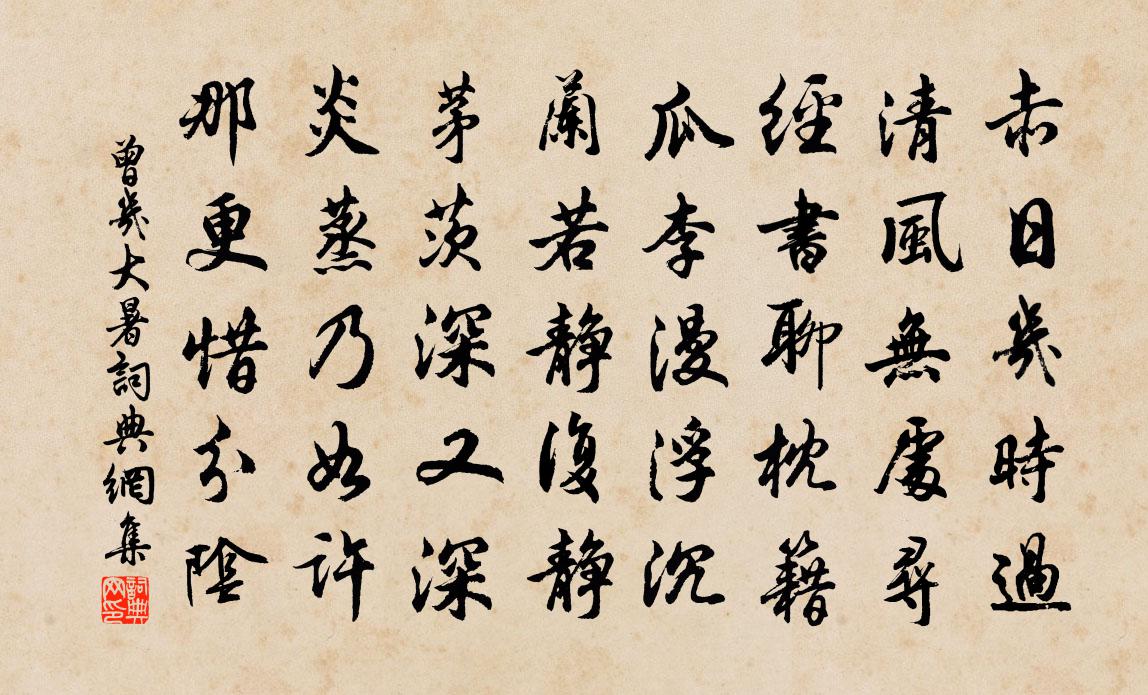 赤日幾時過
清風無處尋
經書聊枕籍
瓜李漫浮沉
蘭若靜復靜
茅茨深又深
炎蒸乃如許
那更惜分陰
曾幾大暑詞典網集
詞典網印